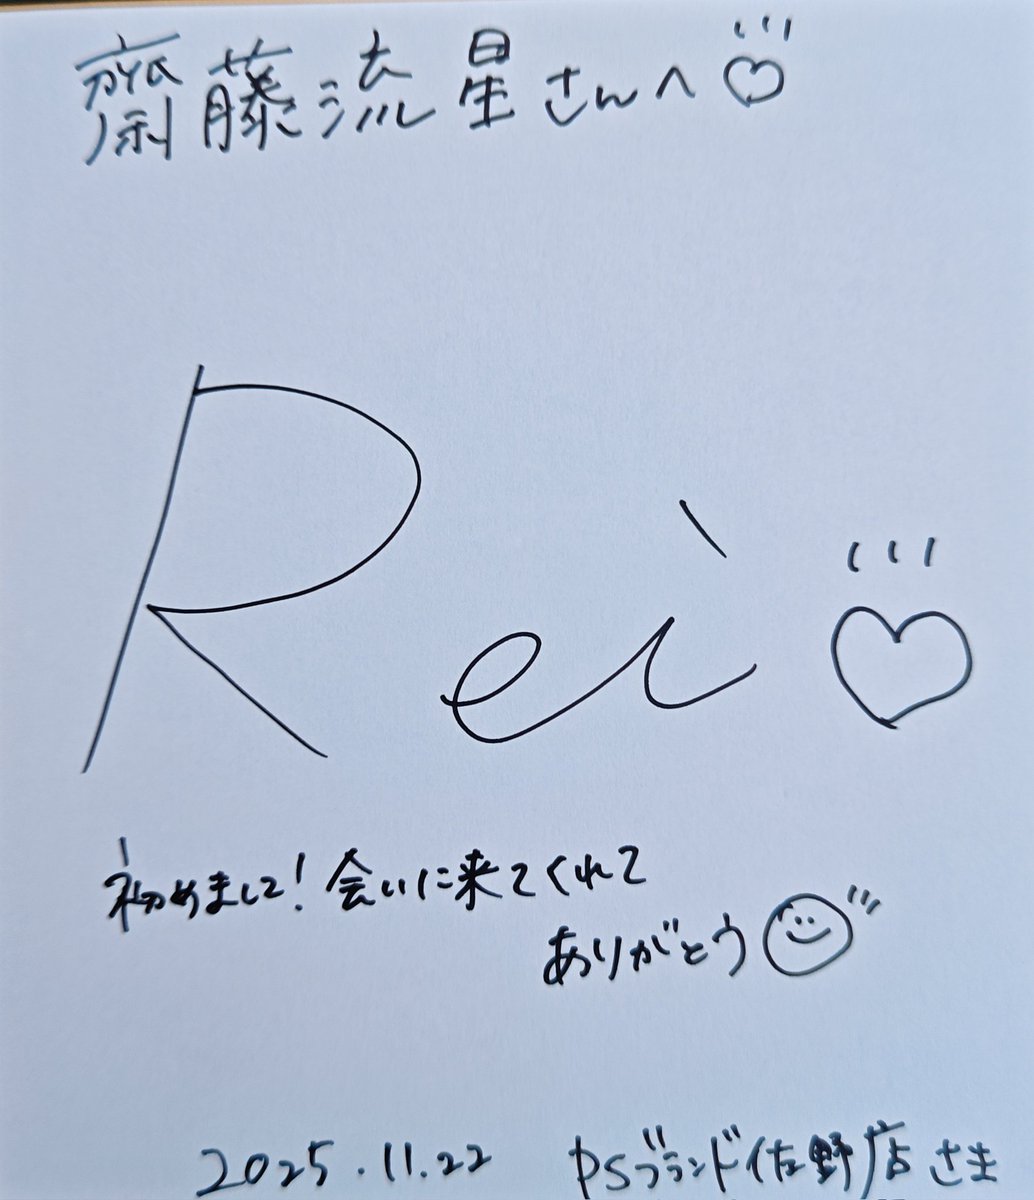 齋藤流星さんへ
Rei
初めまして！会いに来てくれて
ありがとう
2025.11.22 PSブランド佐野店さま